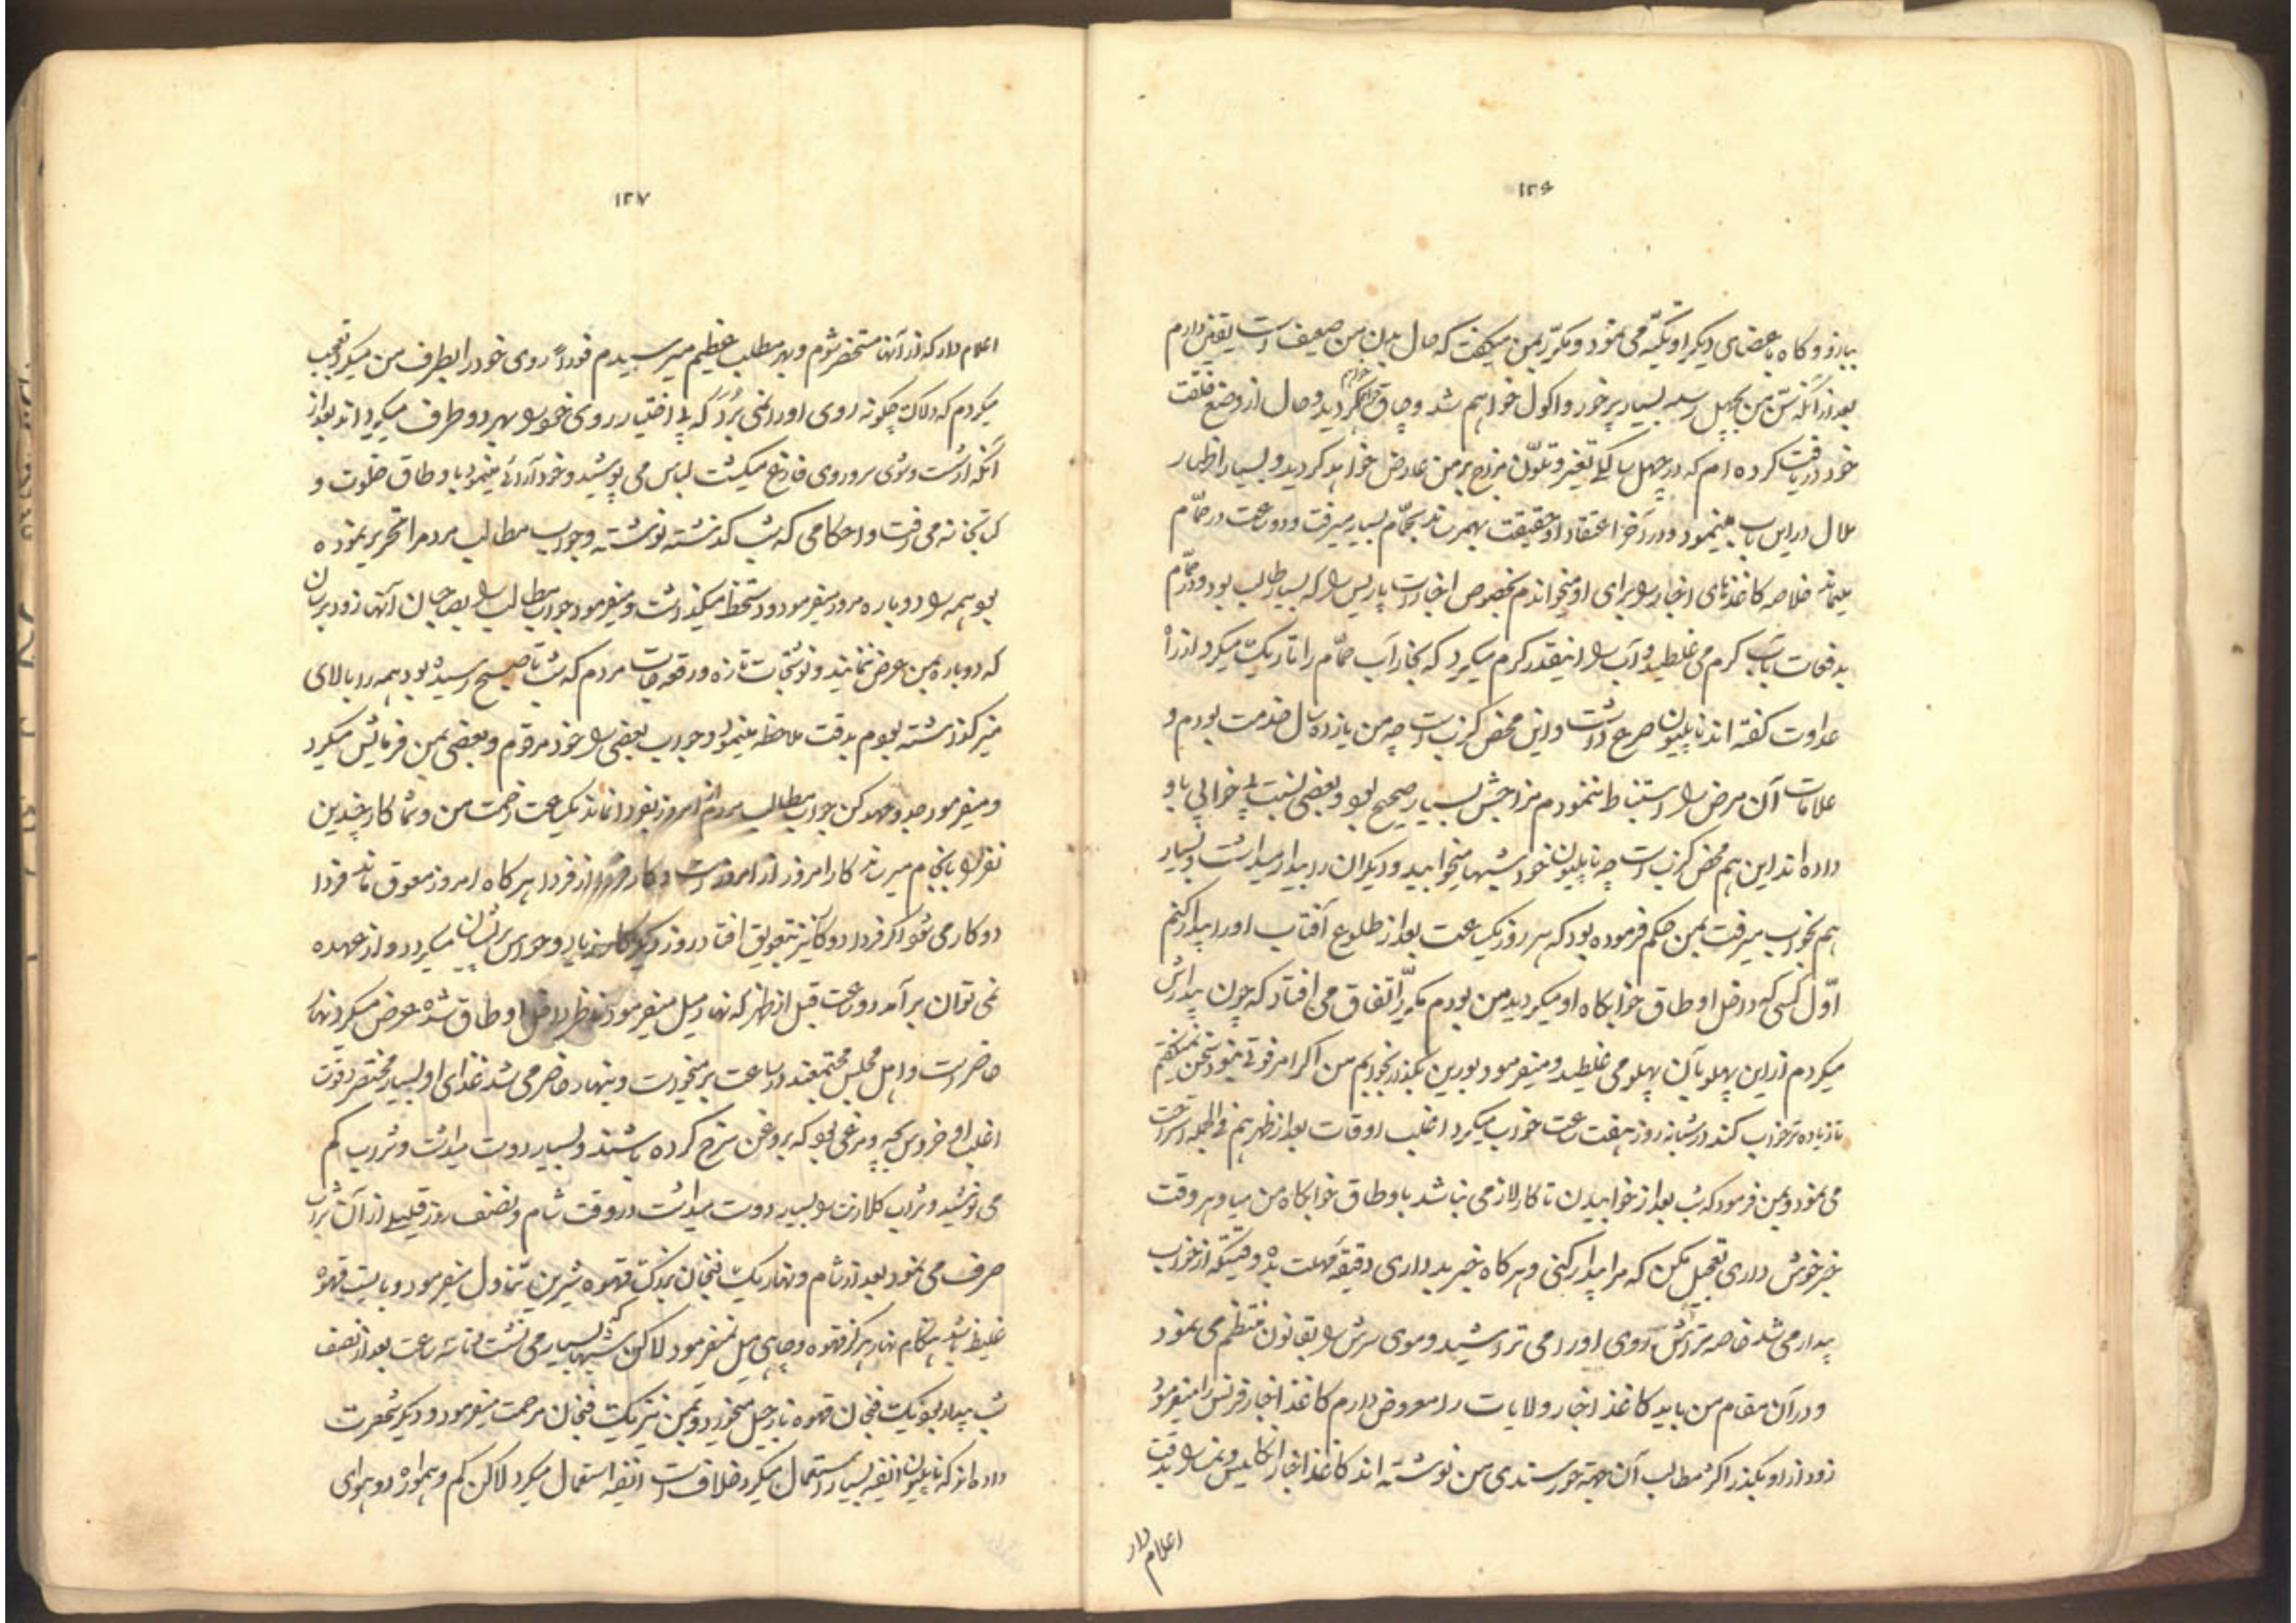 ۱۲۶
ببازو و کاه باعضای دیکر او تکیه می نمود و مکرّر بمن میکفت که حال بدن من ضعیف است یقین دارم
بعد از آنکه سنّ من بچهل رسد بسیار پرخور و اکول خواهم شد و چاق خواهم کردید و حال از وضع خلقت
خود دریافت کرده ام که در چهل سالکی تغیر و تلوّن مزاج بر من عارض خواهد کردید و بسیار اظهار
ملال در این باب مینمود و در آخر اعتقاد او حقیقت بهمرساند بحمّام بسیار میرفت و دو ساعت در حمّام
میماند خلاصه کاغذهای اخبار را برای او میخواندم بخصوص اخبارات پاریس را که بسیار طالب بود و در حمّام
بدفعات بآب کرم می غلطید و آب را اینقدر کرم میکرد که بخار آب حمّام را تاریک میکرد از راه
عداوت کفته اند ناپلیون صرع داشت و این محض کذبست چه من یازده سال خدمت بودم و
علامات آن مرض را استنباط ننمودم مزاجش بسیار صحیح بود و بعضی نسبت بی خوابی باو
داده اند این هم محض کذبست چه ناپلیون خود شبها میخوابید و دیکران را بیدار میداشت و بسیار
هم بخواب میرفت بمن حکم فرموده بود که هر روز یکساعت بعد از طلوع آفتاب او را بیدار کنم
اوّل کسی که داخل اوطاق خوابکاه او میکردید من بودم مکرّر اتفاق می افتاد که چون بیدارش
میکردم از این پهلو بآن پهلو می غلطید و میفرمود بورین بکذار بخوابم من اکر امر فوتی نبود سخن نمیکفتم
تا زیاده تر خواب کند در شبانه روز هفت ساعت خواب میکرد اغلب اوقات بعد از ظهر هم فی الجمله استراحت
می نمود و بمن فرمود که شب بعد از خوابیدن تا کار لازمی نباشد باوطاق خوابکاه من میا و هر وقت
خبر خوش داری تعجیل مکن که مرا بیدار کنی و هر کاه خبر بد داری دقیقه مهلت مده وقتیکه از خواب
بیدار می شد خاصه تراش آمده روی او را می تراشید و موی سرش را بقانون منتظم می نمود
و در آن مقام من باید کاغذ اخبار ولایات را معروض دارم کاغذ اخبار فرنس را میفرمود
زود از او بکذر اکثر مطالب آن جهته خورسندی من نوشته اند کاغذ اخبار انکلیس و نمسا را بدقت
اعلام دار
۱۲۷
اعلام دار که از آنها مستحضر شوم و بهر مطلب عظیم میرسیدم فوراً روی خود را بطرف من میکرد تعجب
میکردم که دلاک چکونه روی او را نمی بُرد که بی اختیار روی خود را بهر دو طرف میکرداند بعد از
آنکه از شست و شوی سر و روی فارغ میکشت لباس می پوشید و خود آرائی مینمود باوطاق خلوت و
کتابخانه می رفت و احکامی که شب کذشته نوشته و جواب مطالب مردم را تحریر نموده
بود همه را دوباره مرور میفرمود و دستخط میکذاشت و میفرمود جواب مطالب را بصاحبان آنها زود برسان
که دوباره بمن عرض ننمایند و نوشتجات تازه و رقعه جات مردم که شب تا صبح رسیده بود همه را بالای
میز کذاشته بودم بدقت ملاحظه مینمود و جواب بعضی را خود مرقوم و بعضی بمن فرمائش میکرد
و میفرمود جد و جهد کن جواب مطالب مردم از امروز بفردا نماند یکساعت زحمت من و شما کار چندین
نفر را بانجام میرساند کار امروز از امروز است و کار فردا از فردا هر کاه امروز معوق ماند فردا
دو کار می شود اکر فردا دو کار نیز بتعویق افتاد روز دیکر کار زیاد و حواس پریشان میکردد و از عهده
نمی توان برآمد دو ساعت قبل از ظهر که نهار میل میفرمود ناظر داخل اوطاق شده عرض میکرد نهار
حاضر است و اهل مجلس مجتمعند در ساعت برمیخواست و بنهار حاضر می شد غذای او بسیار مختصر و قوت
اغلب او خروس بچه و مرغی بود که بروغن سرخ کرده باشند و بسیار دوست میداشت و شراب کم
می نوشید و شراب کلارت را بسیار دوست میداشت در وقت شام و نصف روز قلیلی از آن شراب
صرف می نمود بعد از شام و نهار یک فنجان بزرک قهوه شیرین تناول میفرمود و بایست قهوه
غلیظ باشد هنکام نهار هرکز قهوه و چای میل نمیفرمود لاکن شبها که بسیار می نشست تا سه ساعت بعد از نصف
شب بیدار بود یک فنجان قهوه نارجیل میخورد و بمن نیز یک فنجان مرحمت میفرمود و دیکر شهرت
داده اند که ناپلیون انفیه بسیار استعمال میکرد خلاف است انفیه استعمال میکرد لاکن کم و همواره دو هوای